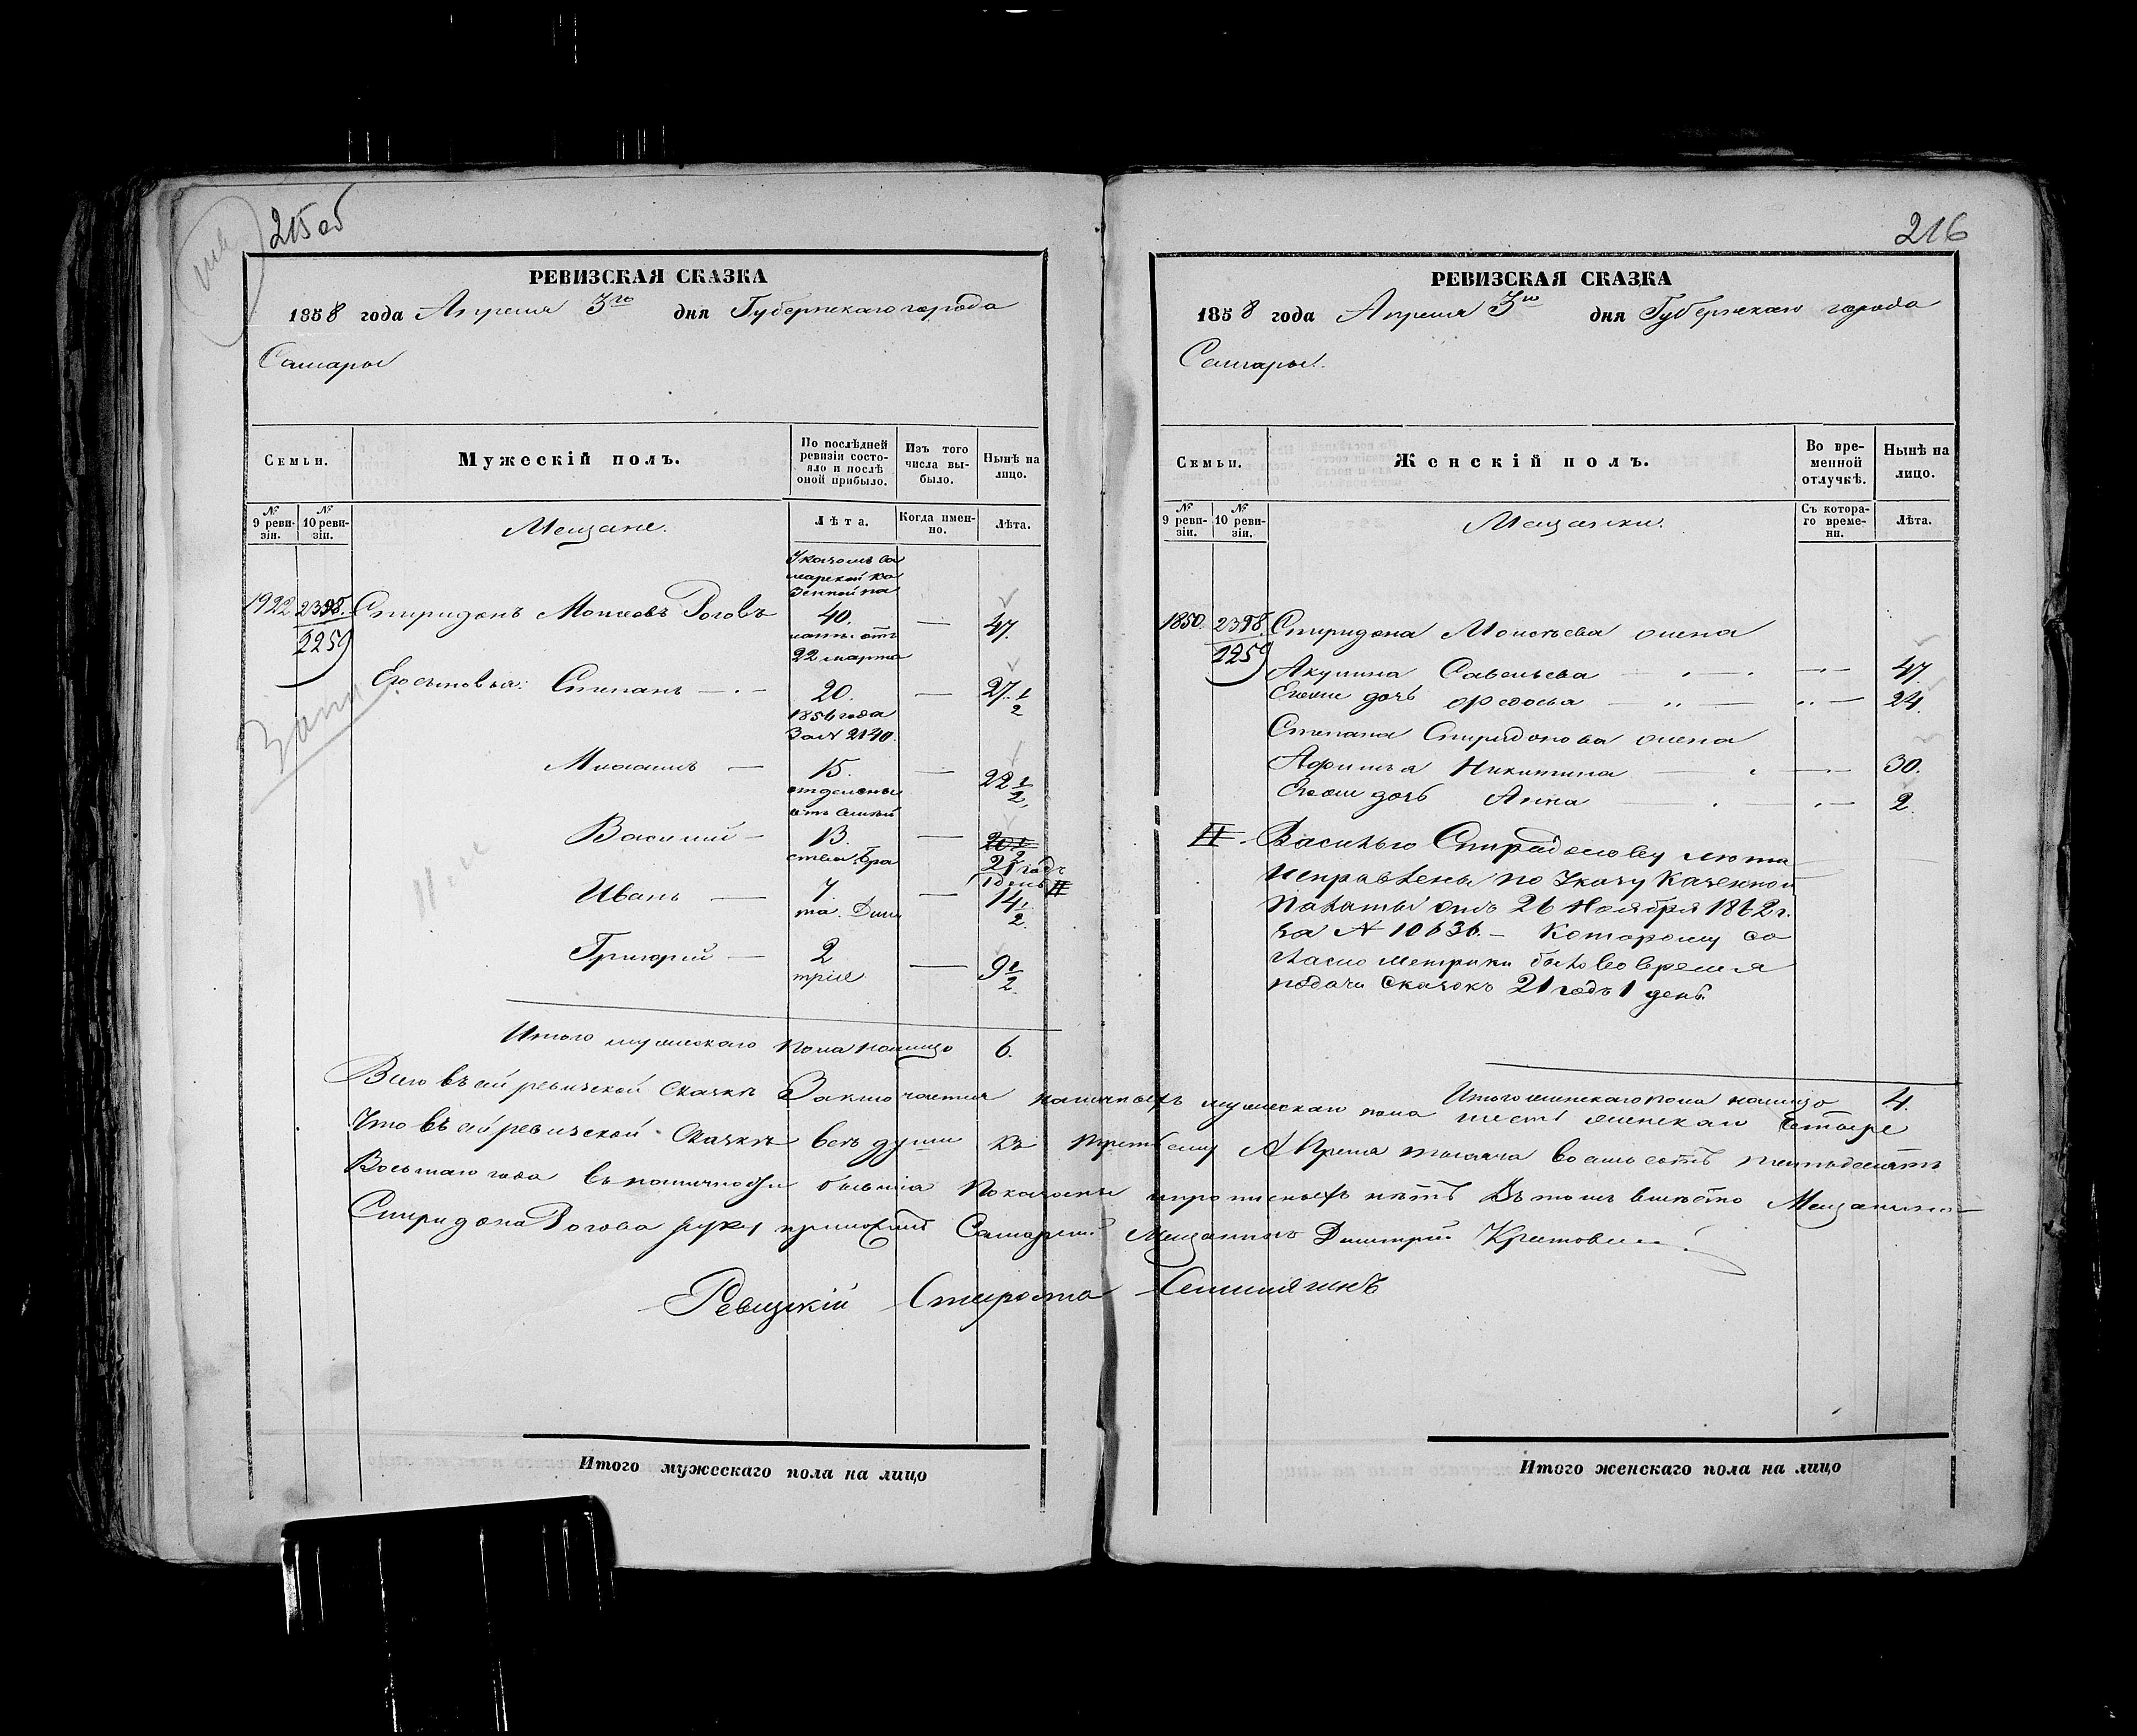 215 об
РЕВИЗСКАЯ СКАЗКА
1858 года Апреля 3го дня Губернскаго города
Самары
Семьи.
Мужескій полъ.
По послѣдней ревизіи состояло и послѣ оной прибыло.
Изъ того числа выбыло.
Нынѣ на лицо.
№ 9 ревизіи.
№ 10 ревизіи.
Мещане.
Лѣта.
Когда именно.
Лѣта.
Указомъ Са
марской ка
зенной па
1922 2398. Спиридонъ Моисеевъ Роговъ 40. — 47.
2259
латы отъ
22 марта
Его сыновья: Степанъ — 20. — 27 1/2
1856 года
За № 2140.
Михаилъ — 15. — 22 1/2
отделены
отъ
Василий — 13. — 20 1/2
21 годъ
1 день #
ства бра
Иванъ — 7. — 14 1/2
та. Дми
Григорий — 2 — 9 1/2
трія
Итого мужескаго пола налицо 6.
216
РЕВИЗСКАЯ СКАЗКА
1858 года Апреля 3го дня Губернскаго города
Самары.
Семьи.
Женскій полъ.
Во временной отлучкѣ.
Нынѣ на лицо.
№ 9 ревизіи.
№ 10 ревизіи.
Мещанки.
Съ котораго времени.
Лѣта.
1850. 2398. Спиридона Моисеева жена
2259
Акулина Савельева — 47.
Ихъ дочь Федосья — 24.
Степана Спиридонова жена
Афимья Никитина — 30.
Ихъ дочь Анна — 2.
# Василью Спиридонову лѣта
исправлены по Указу Казенной
Палаты отъ 26 Ноября 1862 г.
за № 10636. — Которому со
гласно метрики было во время
подачи сказокъ 21 годъ 1 день.
Итого женскаго пола налицо 4.
Всего въ сей ревизской сказкѣ Заключается наличныхъ мужеска пола шесть женска четыре
Что въ сей ревизской сказкѣ всѣ души къ третьему Апреля тысяча восемь сотъ пятьдесятъ
Восьмаго года въ наличности бывшіа показаны и прописныхъ нѣтъ Въ томъ вместо Мещанина
Спиридона Рогова руку приложилъ Самарский Мещанинъ Дмитрий
Ревизскій Староста
Итого мужескаго пола на лицо
Итого женскаго пола на лицо